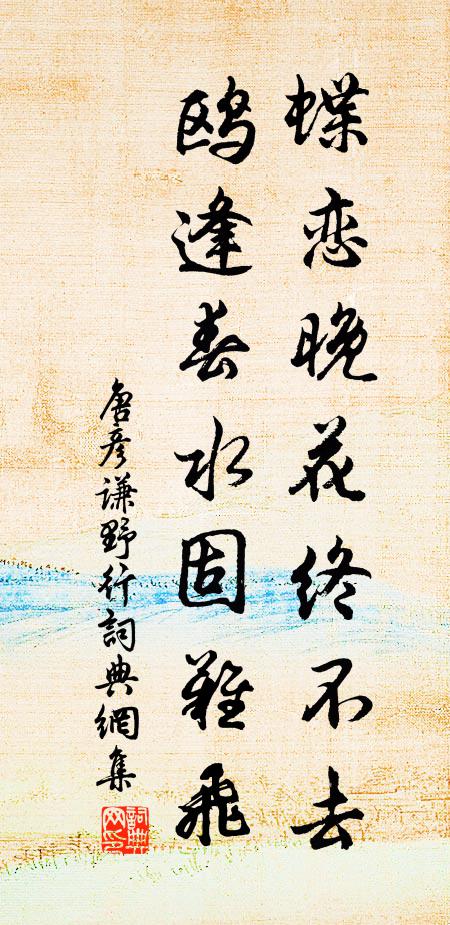 蝶恋晚花终不去
鸥逢春水固难飞
唐彦谦野行詞典網集
詞典网印